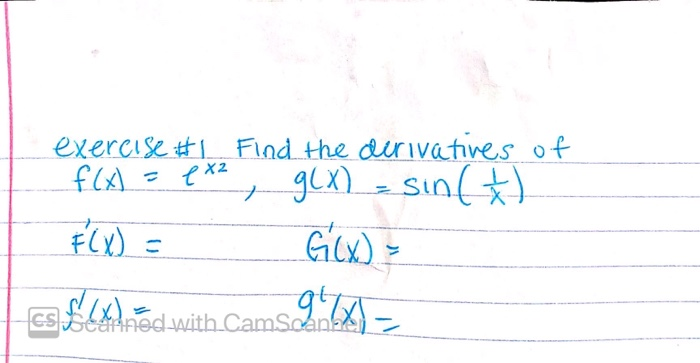 exercise #1 Find the derivatives of
f(x) = e^x2 , g(x) = sin(1/x)
F'(x) = G'(x) =
f'(x) = g'(x) =
CS Scanned with CamScanner